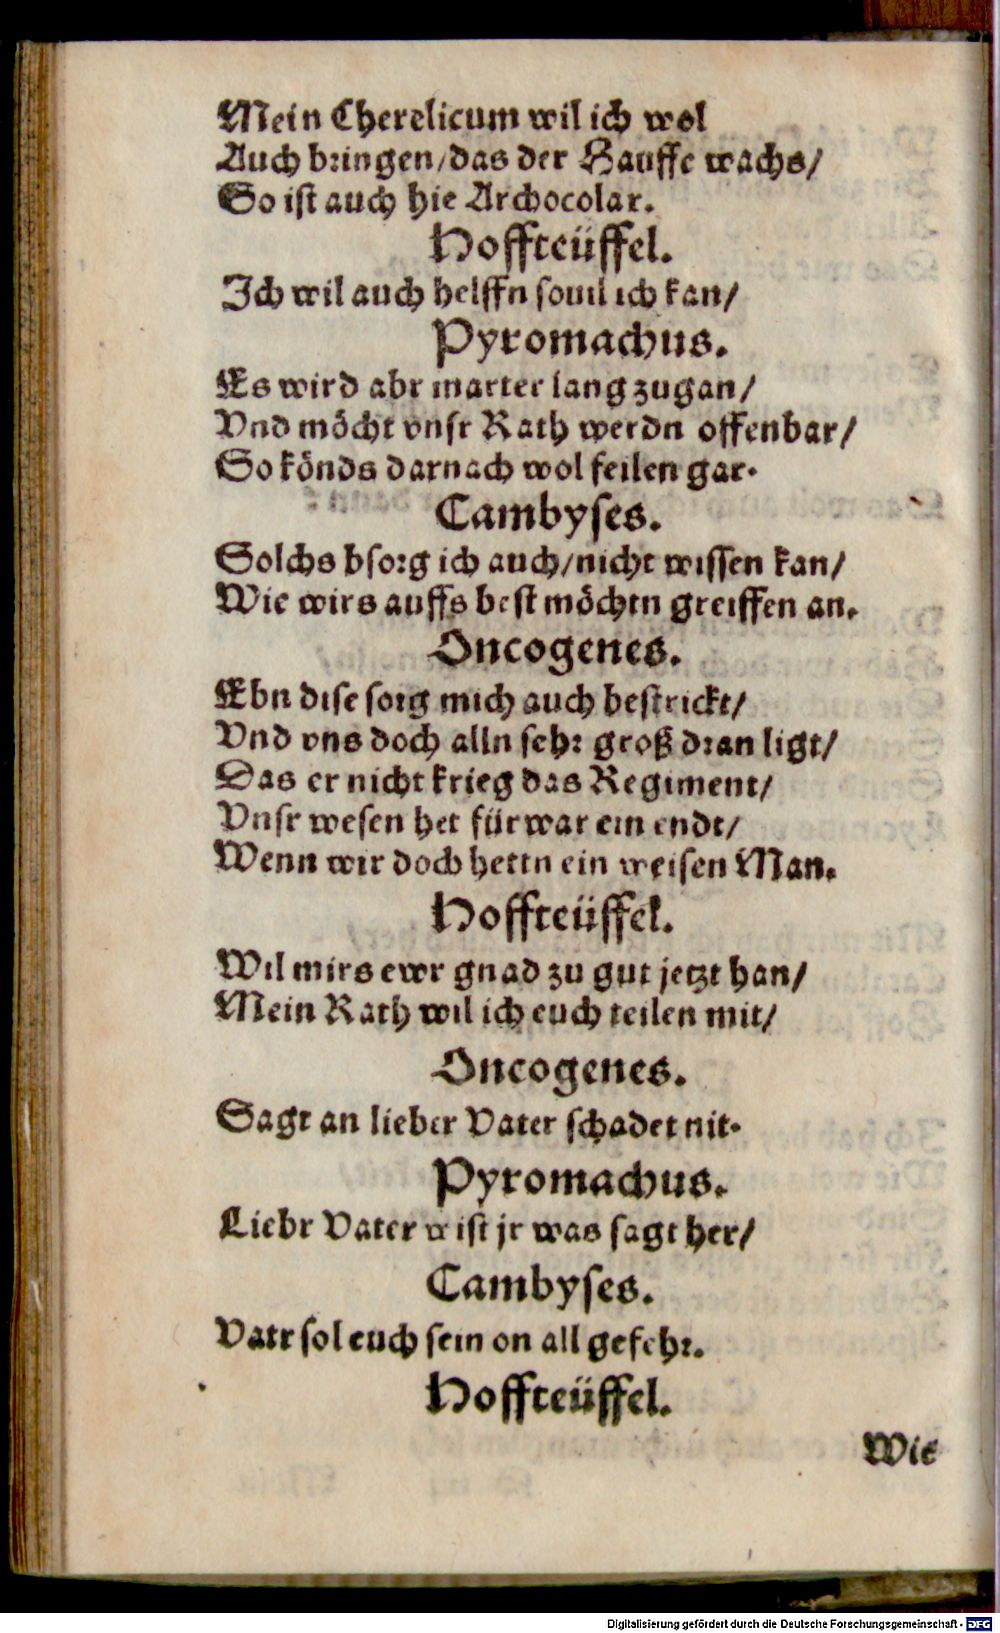 Mein Cherelicum wil ich wol
Auch bringen/das der Hauffe wachs/
So ist auch hie Archocolax.
Hoffteüffel.
Ich wil auch helffn souil ich kan/
Pyromachus.
Es wird abr marter lang zugan/
Vnd möcht vnsr Rath werdn offenbar/
So könds darnach wol feilen gar.
Cambyses.
Solchs bsorg ich auch/nicht wissen kan/
Wie wirs auffs best möchtn greiffen an.
Oncogenes.
Ebn dise sorg mich auch bestrickt/
Vnd vns doch alln sehr groß dran ligt/
Das er nicht krieg das Regiment/
Vnsr wesen het fürwar ein endt/
Wenn wir doch hettn ein weisen Man.
Hoffteüffel.
Wil mirs ewr gnad zu gut jetzt han/
Mein Rath wil ich euch teilen mit/
Oncogenes.
Sagt an lieber Vater schadet nit.
Pyromachus.
Liebr Vater wist jr was sagt her/
Cambyses.
Vatr sol euch sein on all gefehr.
Hoffteüffel.
Wie
Digitalisierung gefördert durch die Deutsche Forschungsgemeinschaft - DFG